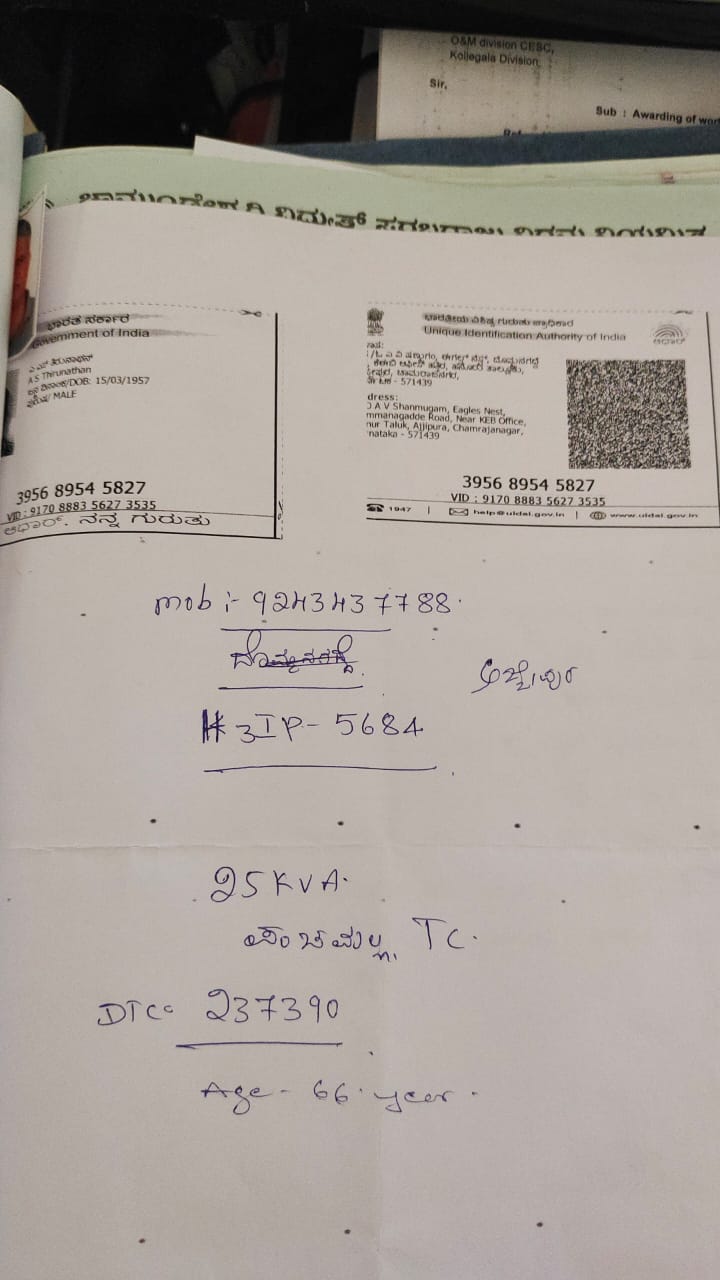 O&M division CESC,
Kollegala Division
Sir,
Sub : Awarding of wor
ಭಾರತ ಸರ್ಕಾರ
Government of India
A S Thirunathan
DOB: 15/03/1957
MALE
3956 8954 5827
VID : 9170 8883 5627 3535
ಆಧಾರ್, ನನ್ನ ಗುರುತು
Unique Identification Authority of India
- 571439
dress:
O A V Shanmugam, Eagles Nest,
mmanagadde Road, Near KEB Office,
nur Taluk, Ajjipura, Chamrajanagar,
nataka - 571439
3956 8954 5827
VID : 9170 8883 5627 3535
1947 | help@uidai.gov.in | www.uidai.gov.in
mob :- 9243437788.
ಅಜ್ಜೀಪುರ
3IP- 5684
25 KVA.
TC.
DTC= 237390
Age - 66 year.